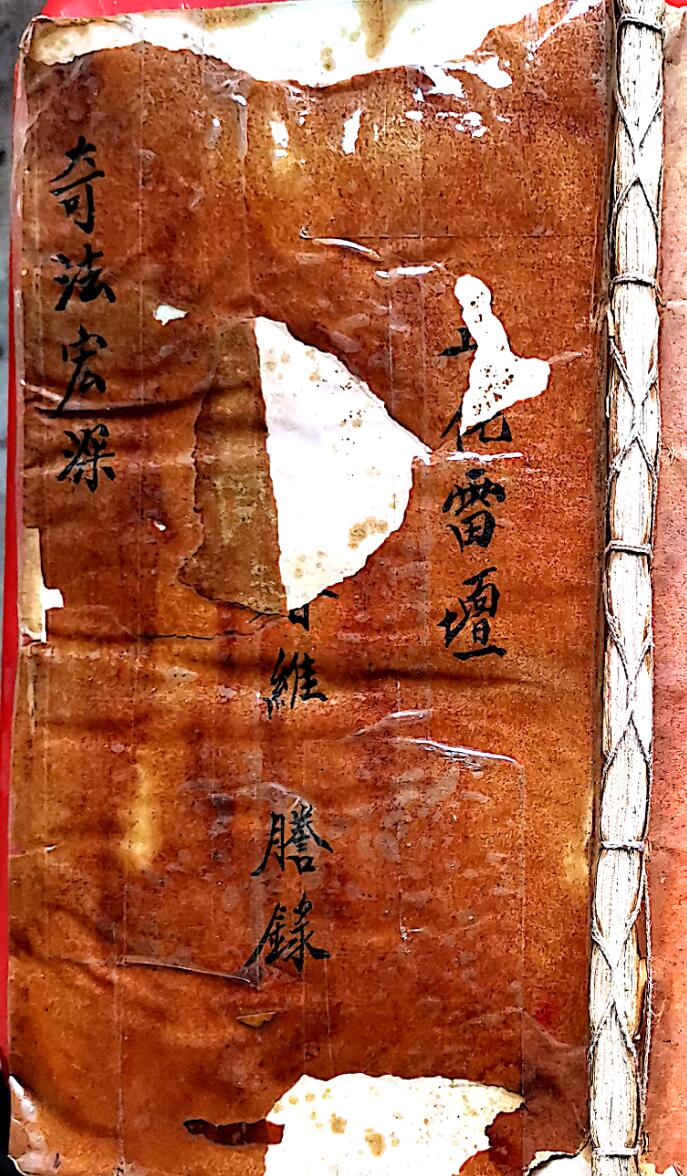 雷壇
維 謄錄
奇法宏深